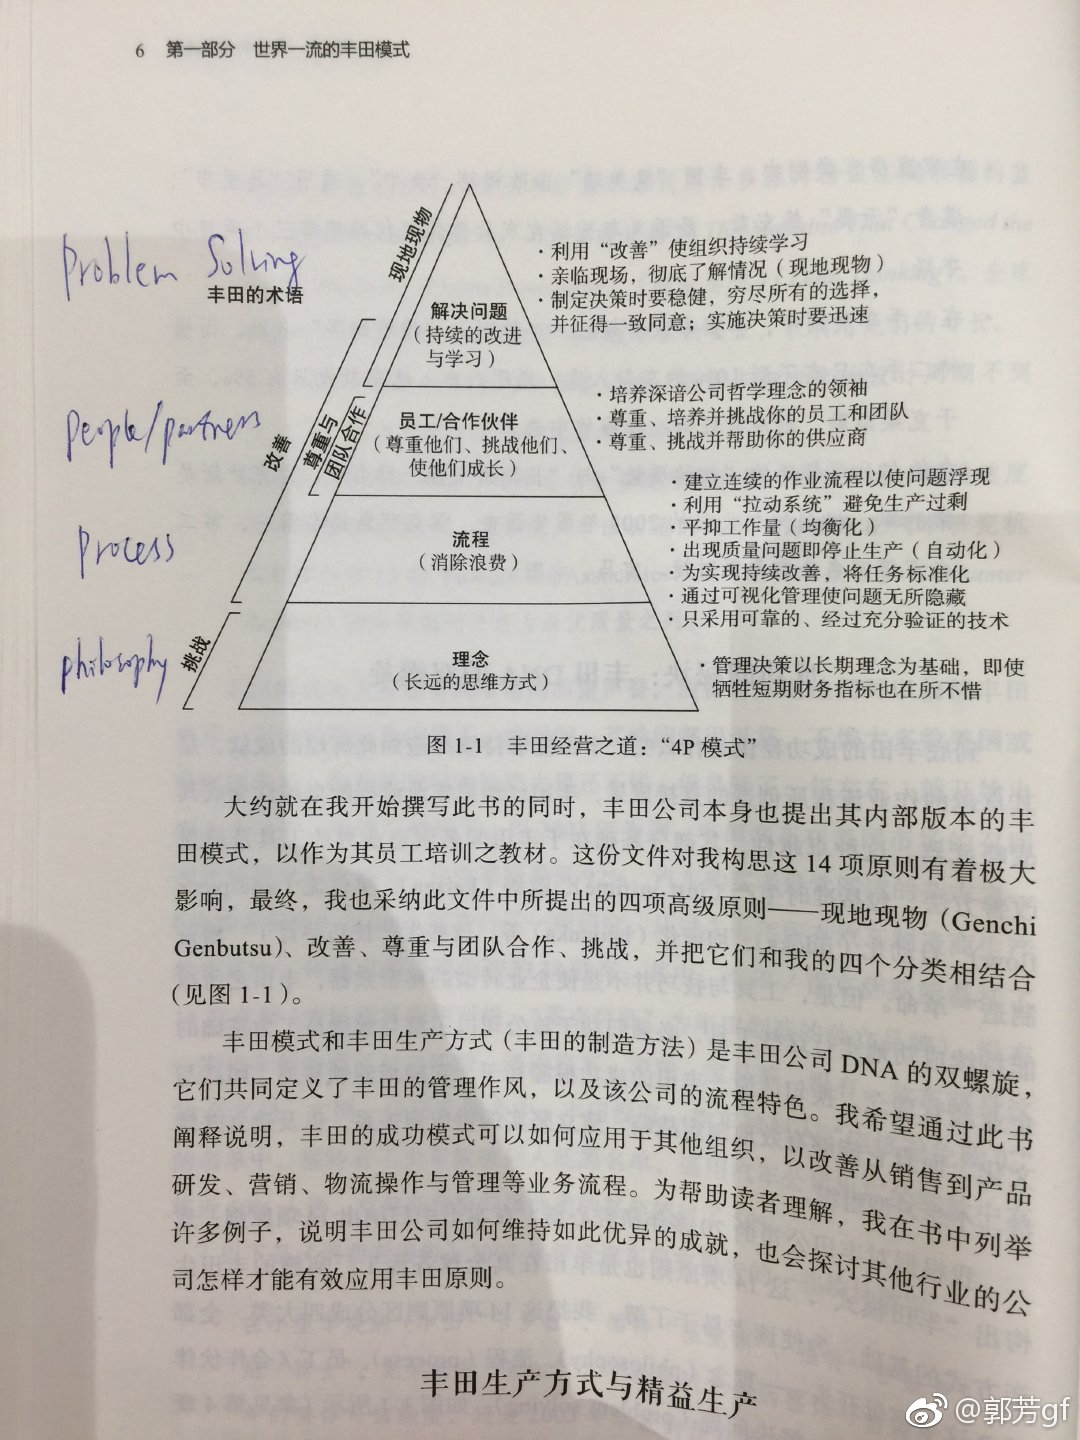 6 第一部分 世界一流的丰田模式
Problem Solving
丰田的术语
People/partners
Process
philosophy
现地现物
改善
尊重与
团队合作
挑战
解决问题
(持续的改进
与学习)
员工/合作伙伴
(尊重他们、挑战他们、
使他们成长)
流程
(消除浪费)
理念
(长远的思维方式)
·利用“改善”使组织持续学习
·亲临现场，彻底了解情况(现地现物)
·制定决策时要稳健，穷尽所有的选择，
并征得一致同意；实施决策时要迅速
·培养深谙公司哲学理念的领袖
·尊重、培养并挑战你的员工和团队
·尊重、挑战并帮助你的供应商
·建立连续的作业流程以使问题浮现
·利用“拉动系统”避免生产过剩
·平抑工作量(均衡化)
·出现质量问题即停止生产(自动化)
·为实现持续改善，将任务标准化
·通过可视化管理使问题无所隐藏
·只采用可靠的、经过充分验证的技术
·管理决策以长期理念为基础，即使
牺牲短期财务指标也在所不惜
图 1-1 丰田经营之道：“4P 模式”
大约就在我开始撰写此书的同时，丰田公司本身也提出其内部版本的丰
田模式，以作为其员工培训之教材。这份文件对我构思这 14 项原则有着极大
影响，最终，我也采纳此文件中所提出的四项高级原则——现地现物(Genchi
Genbutsu)、改善、尊重与团队合作、挑战，并把它们和我的四个分类相结合
(见图 1-1)。
丰田模式和丰田生产方式(丰田的制造方法)是丰田公司 DNA 的双螺旋，
它们共同定义了丰田的管理作风，以及该公司的流程特色。我希望通过此书
阐释说明，丰田的成功模式可以如何应用于其他组织，以改善从销售到产品
研发、营销、物流操作与管理等业务流程。为帮助读者理解，我在书中列举
许多例子，说明丰田公司如何维持如此优异的成就，也会探讨其他行业的公
司怎样才能有效应用丰田原则。
丰田生产方式与精益生产
@郭芳gf